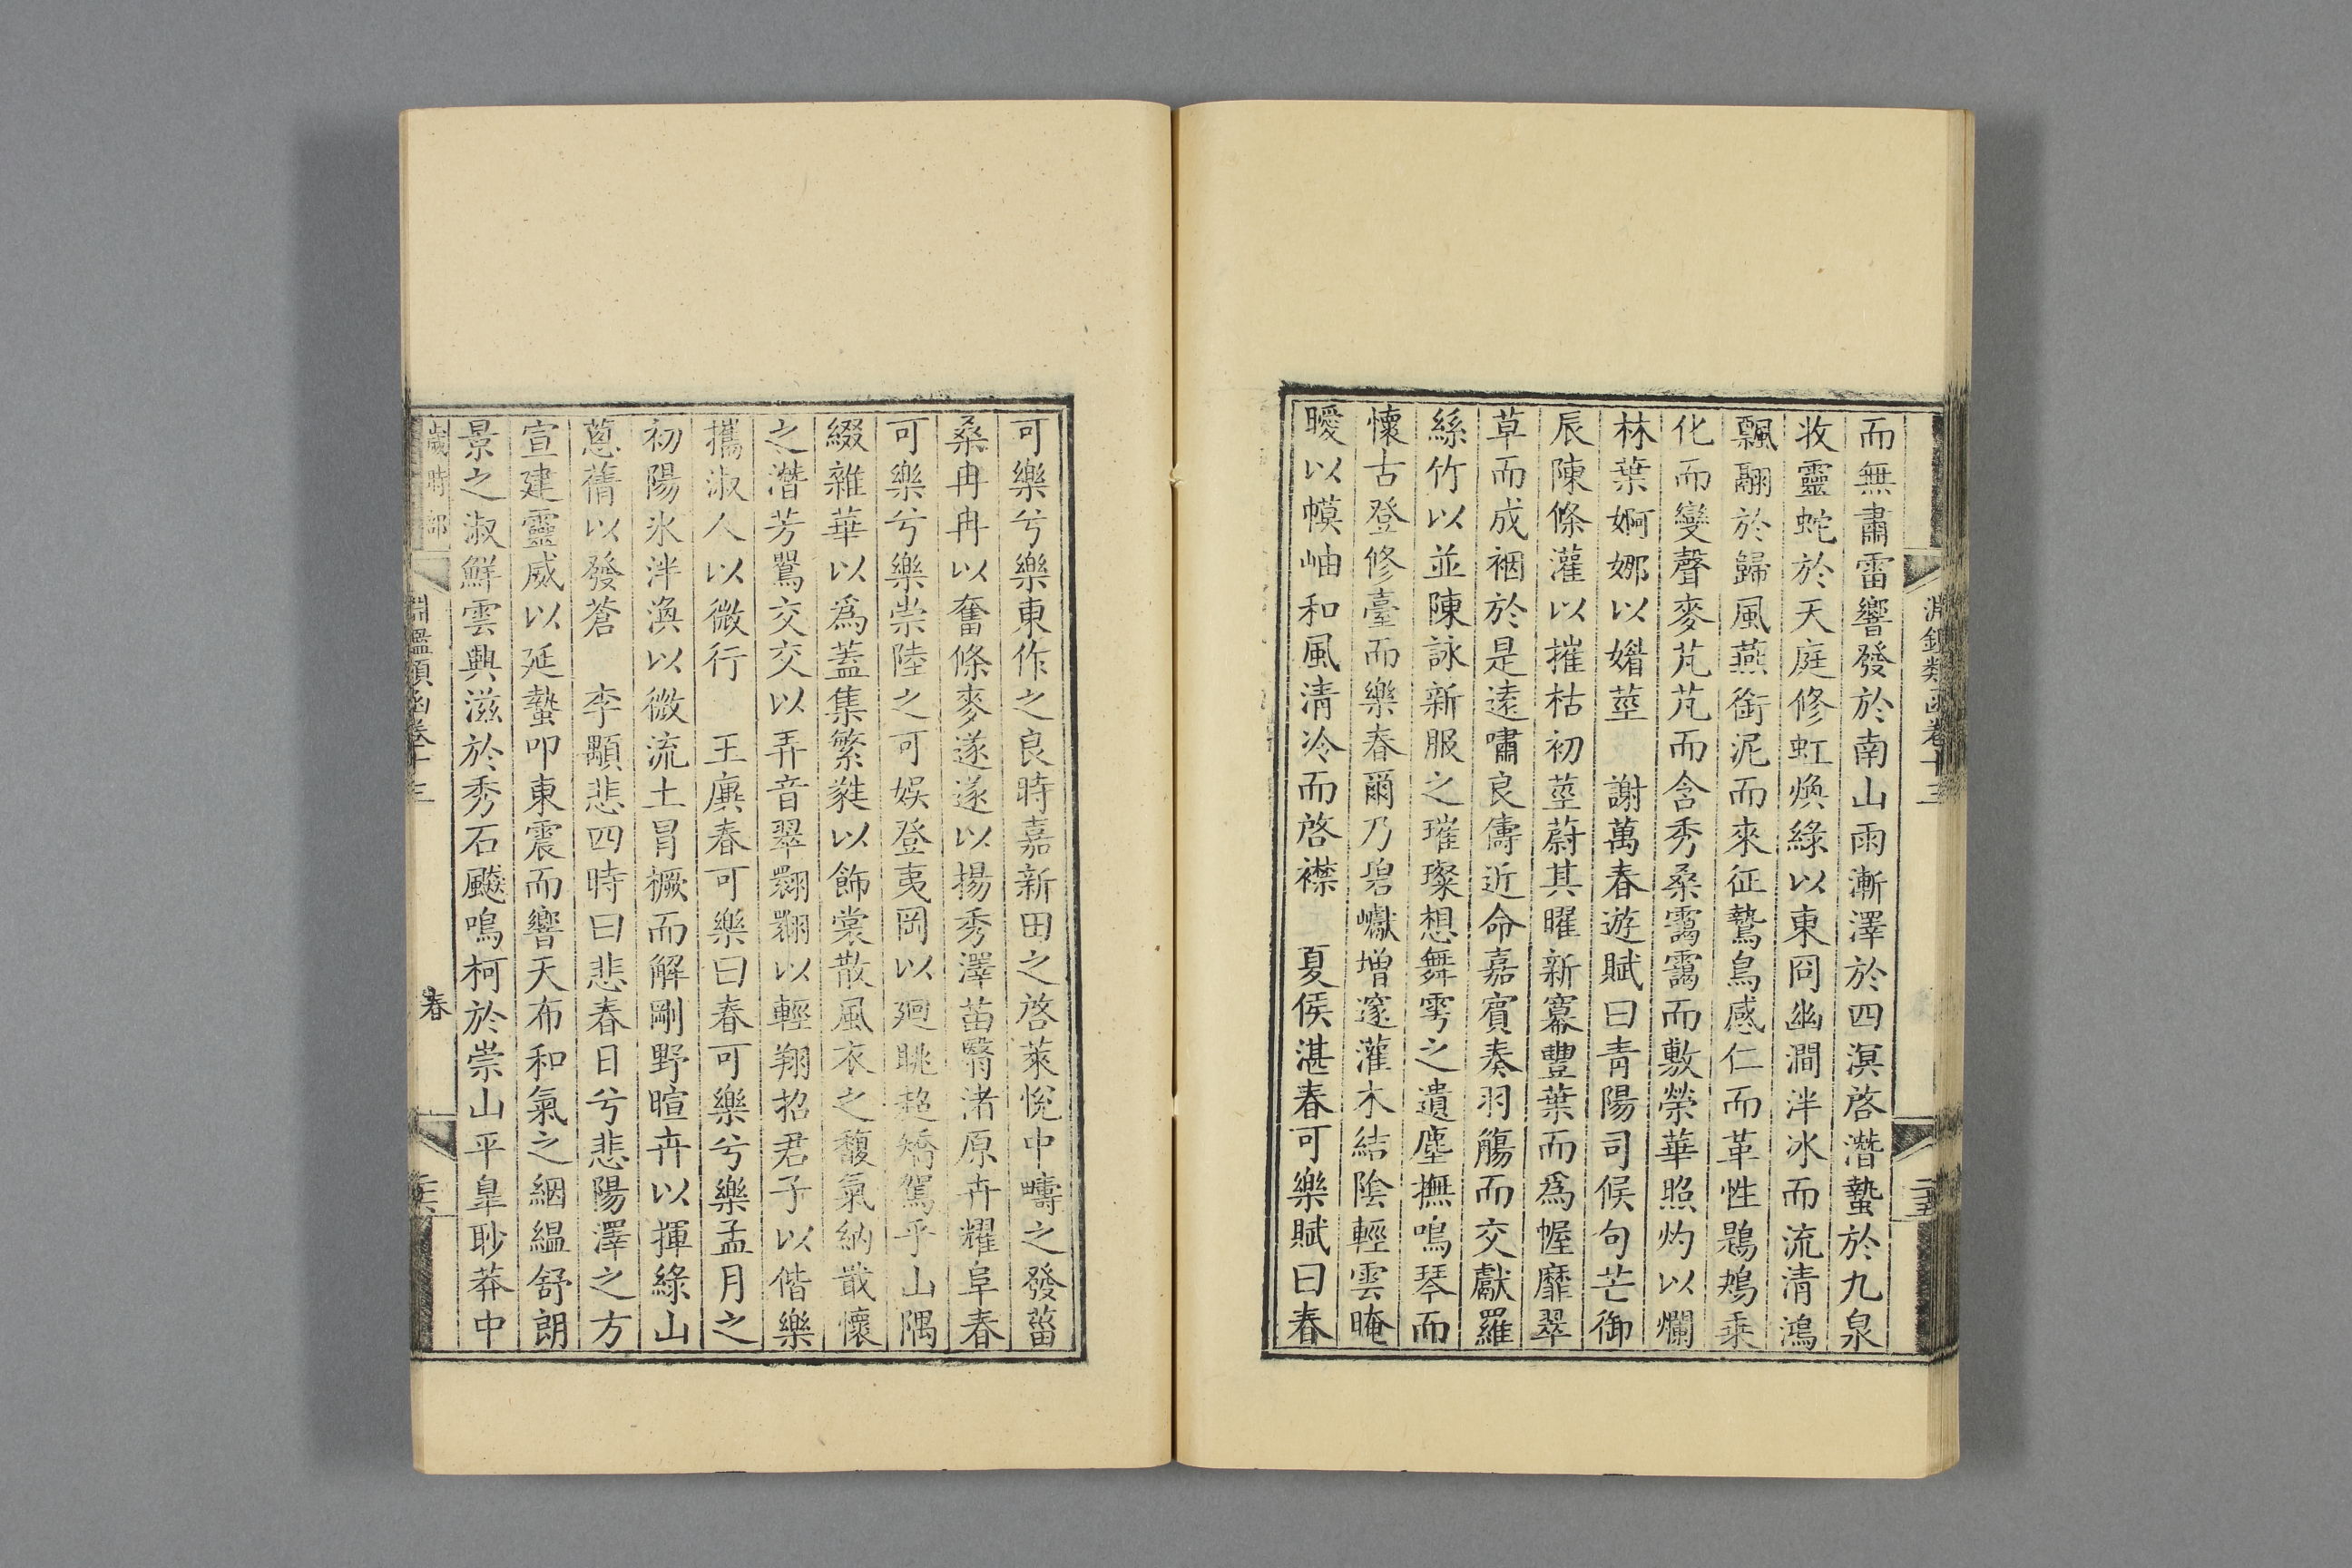 淵鑑類函卷十三
二十五
而無肅雷響發於南山雨漸澤於四溟啓潛蟄於九泉
收靈蛇於天庭修虹煥綠以東冏幽澗泮冰而流清鴻
飄翮於歸風燕銜泥而來征鷙鳥感仁而革性鶗鴂乘
化而變聲麥芃芃而含秀桑靄靄而敷榮華照灼以爛
林葉婀娜以媚莖　謝萬春遊賦曰青陽司候句芒御
辰陳條灌以摧枯初莖蔚其曜新幕豐葉而爲幄靡翠
草而成裀於是遠嘯良儔近命嘉賓奏羽觴而交獻羅
絲竹以並陳詠新服之璀璨想舞雩之遺塵撫鳴琴而
懷古登修臺而樂春爾乃碧巘增邃灌木結陰輕雲晻
曖以幙岫和風清冷而啓襟　夏侯湛春可樂賦曰春
可樂兮樂東作之良時嘉新田之啓萊悅中疇之發菑
桑冉冉以奮條麥遂遂以揚秀澤苗翳渚原卉耀阜春
可樂兮樂崇陸之可娱登夷岡以廻眺超矯駕乎山隅
綴雜華以爲蓋集繁蕤以飾裳散風衣之馥氣納戢懷
之潛芳鶯交交以弄音翠翾翾以輕翔招君子以偕樂
攜淑人以微行　王廙春可樂曰春可樂兮樂孟月之
初陽氷泮渙以微流土冒橛而解剛野暄卉以揮綠山
蔥蒨以發蒼　李顒悲四時曰悲春日兮悲陽澤之方
宣建靈威以延蟄叩東震而響天布和氣之絪縕舒朗
景之淑鮮雲興滋於秀石飈鳴柯於崇山平皐眇莽中
歲時部
淵鑑類函卷十三
春
二十六